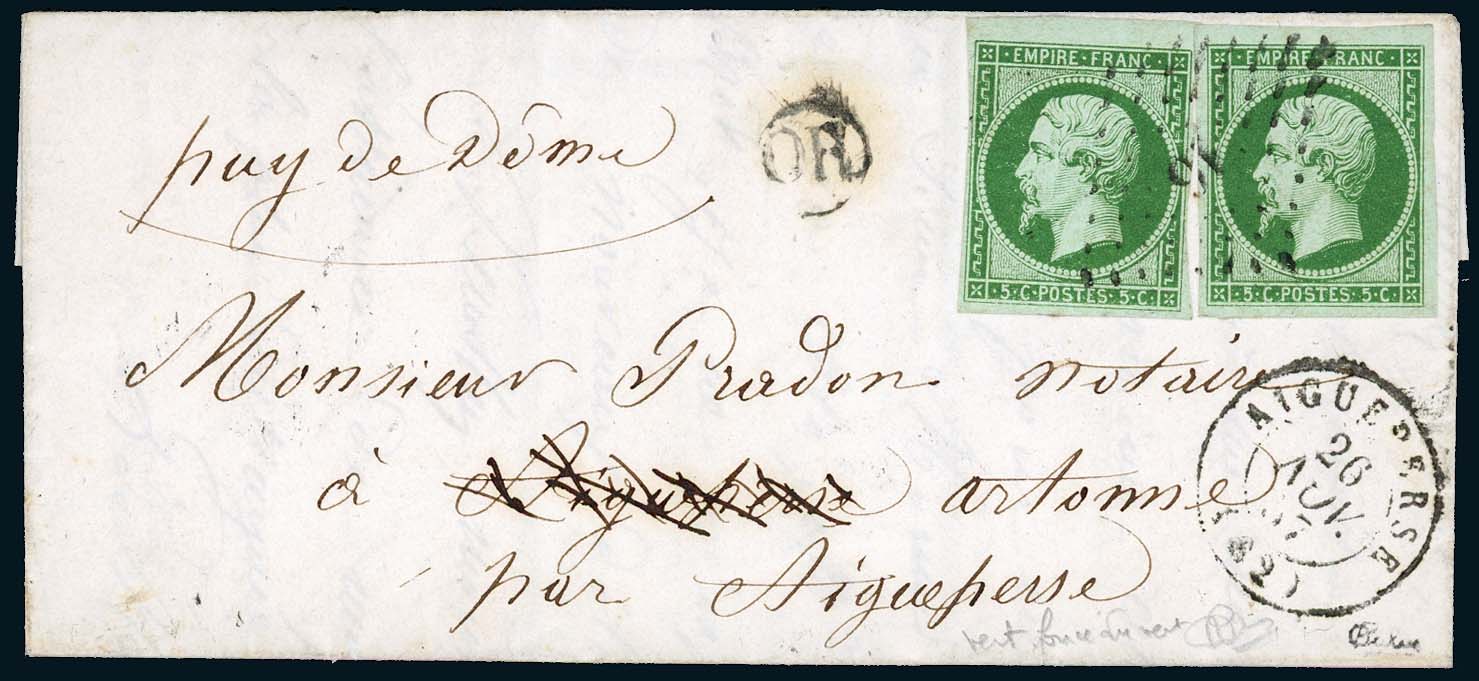 EMPIRE · FRANC
EMPIRE · FRANC
5 · C · POSTES · 5 · C ·
5 · C · POSTES · 5 · C ·
OR
puy de Dôme
Monsieur Pradon notaire
à Aigueperse artonne
par Aigueperse
AIGUEPERSE
26
NOV.
(62)
vert foncé